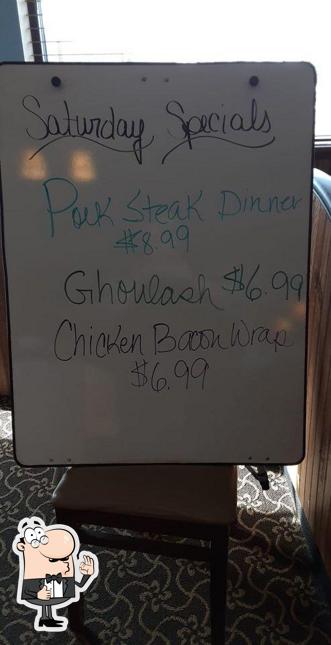 Saturday Specials
Pork Steak Dinner
$8.99
Ghoulash $6.99
Chicken Bacon Wrap
$6.99